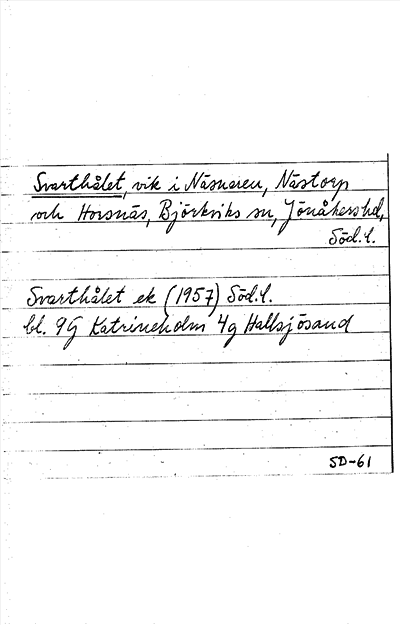 Svarthålet, vik i Näsnaren, Nästorp
och Horsnäs, Björkviks sn, Jönåkers hd,
Söd.l.
Svarthålet ek (1957) Söd.l.
bl. 9G Katrineholm 4g Hallsjösand
SD-61